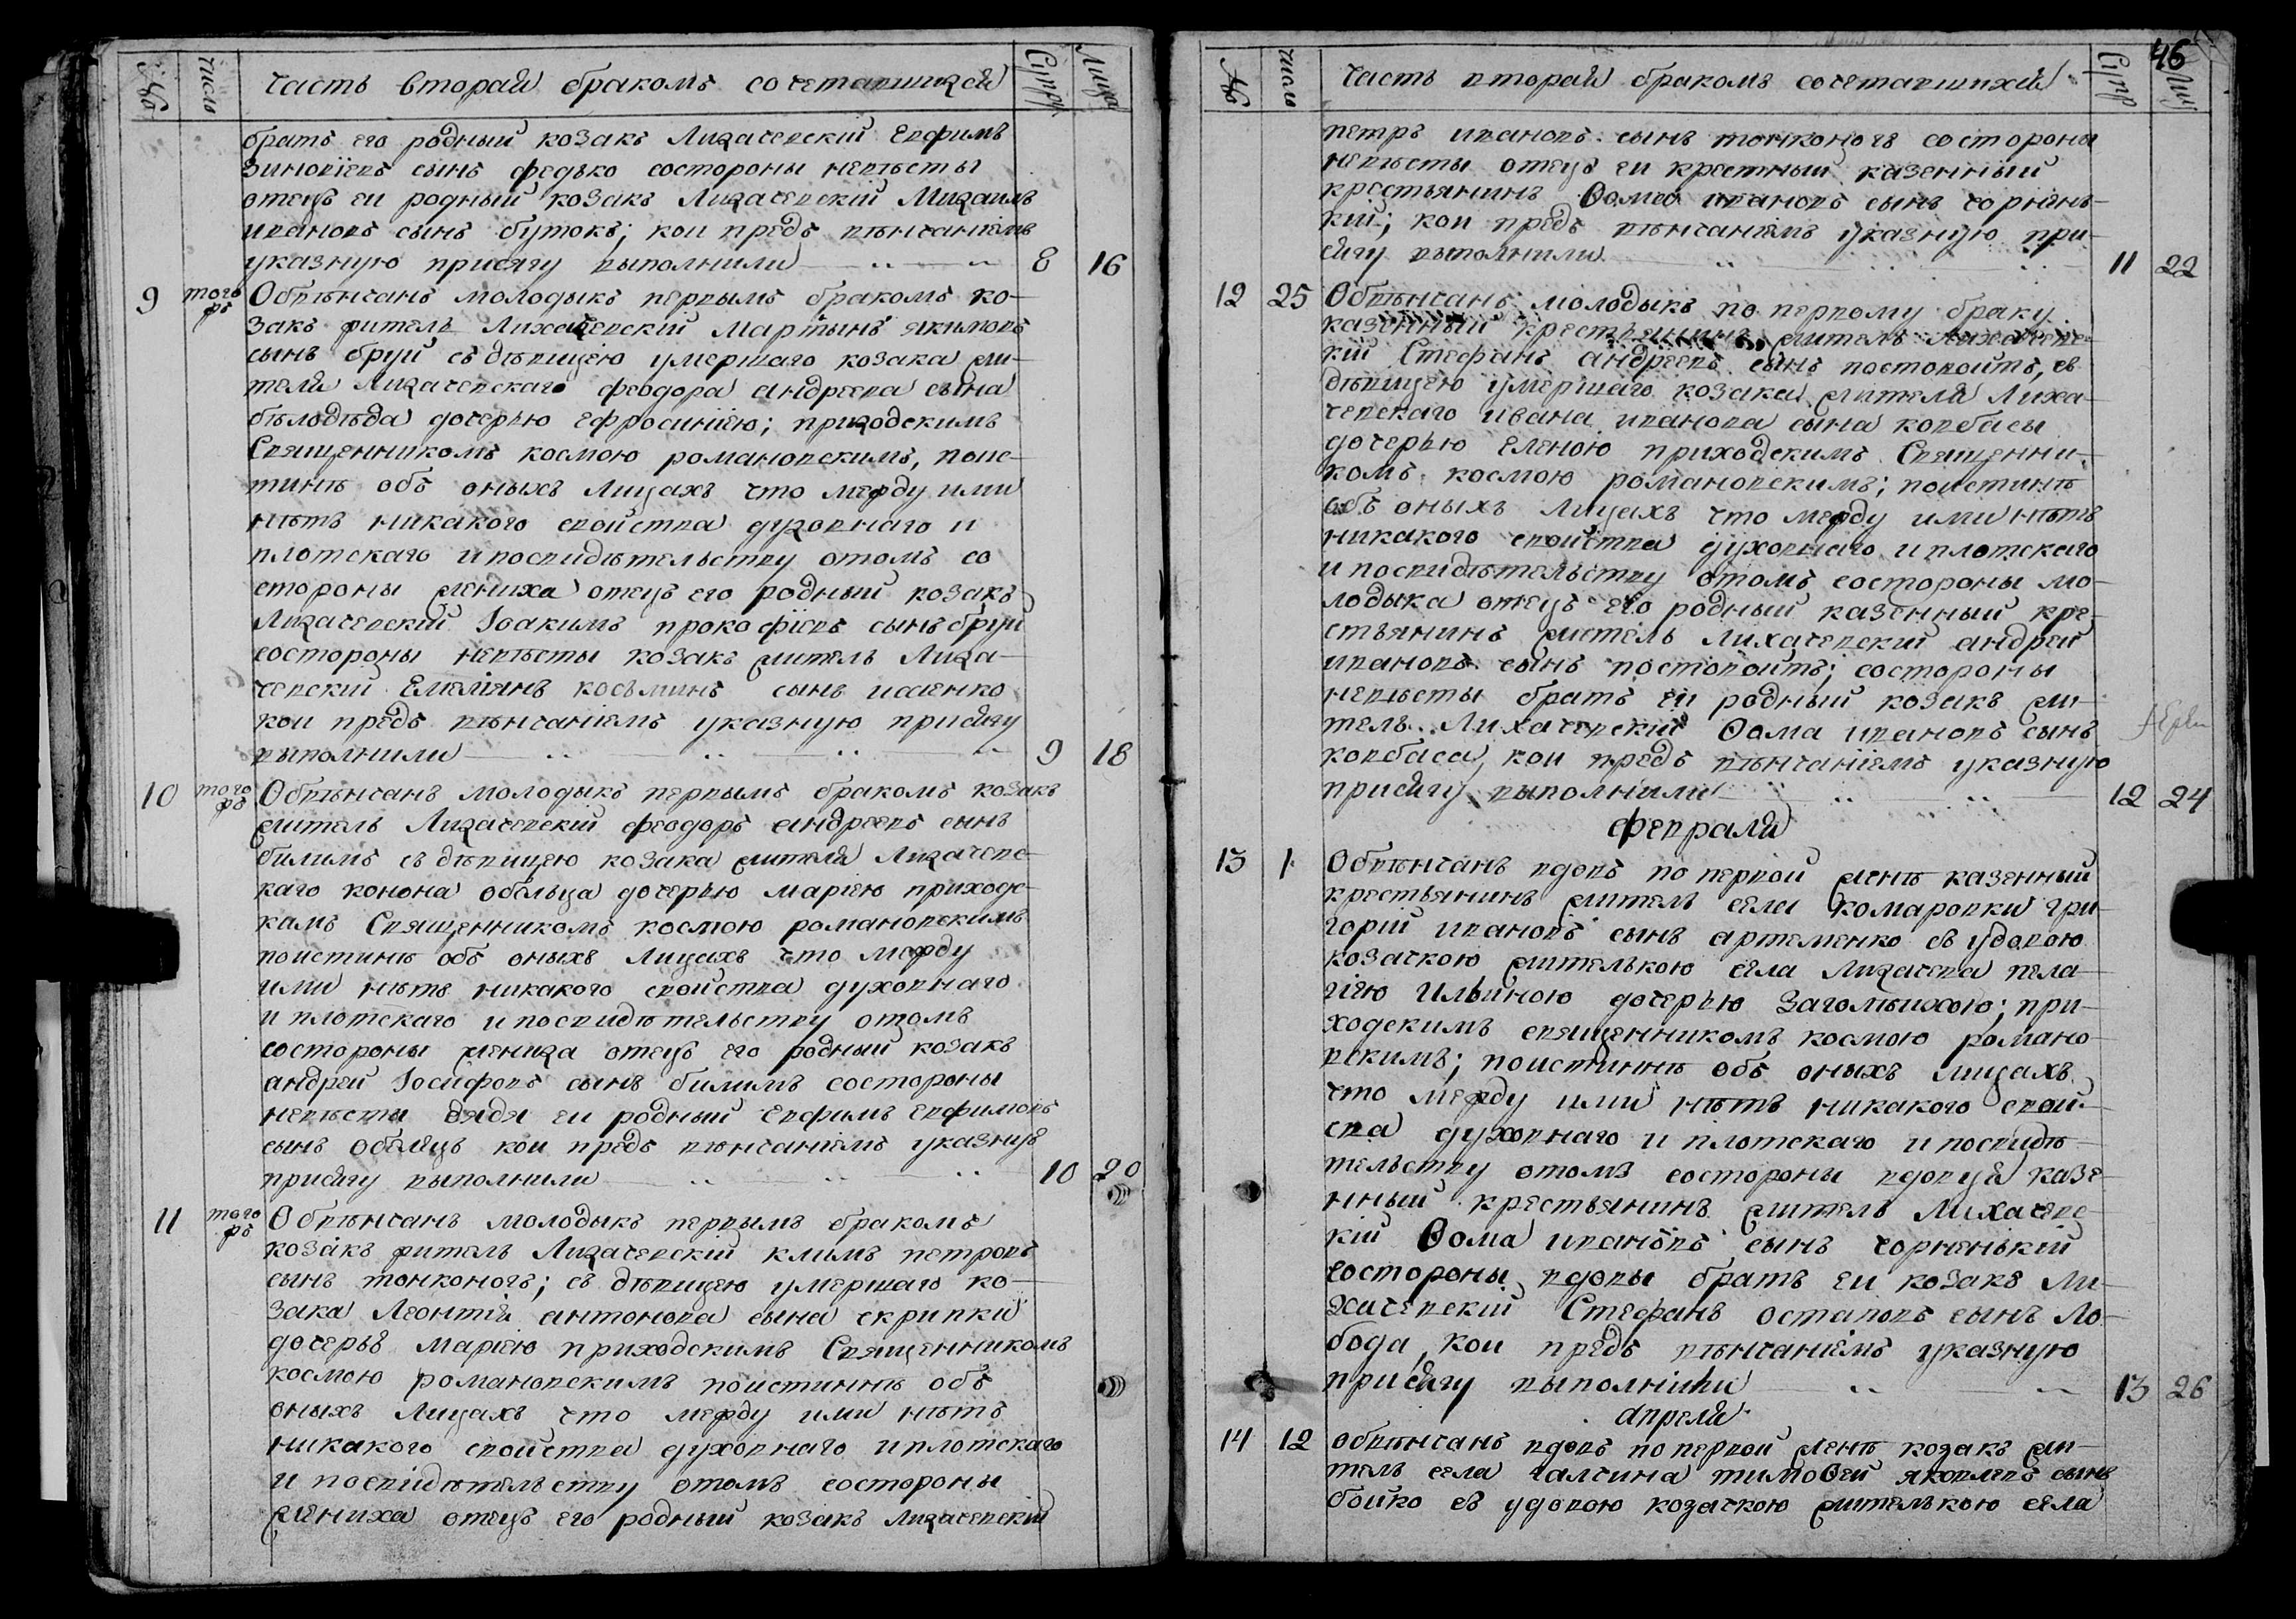 №
число
часть вторая бракомъ сочетавшихся
Супру
Лица
братъ его родный козакъ Лихачевскій Евфимъ
Зиновіевъ сынъ Федько состороны невѣсты
отецъ еи родный козакъ Лихачевскій Михаилъ
ивановъ сынъ бутокъ; кои предъ вѣнчаніемъ
указную присягу выполнили 8 16
9 того жъ Обвѣнчанъ молодыкъ первымъ бракомъ ко-
закъ житель Лихачевскій Мартынъ якимовъ
сынъ бруй съ дѣвицею умершаго козака жи-
теля Лихачевскаго Феодора андреева сына
бѣлодѣда дочерью Ефросиніею; приходскимъ
Священникомъ космою романовскимъ, поис-
тинѣ объ оныхъ лицахъ что между ими
нѣтъ никакого свойства духовнаго и
плотскаго и посвидѣтельству отомъ со
стороны жениха отецъ его родный козакъ
Лихачевскій Іоакимъ прокофіевъ сынъ бруй
состороны невѣсты козакъ житель Лиха-
чевскій Емеліянъ косьминъ сынъ исаенко
кои предъ вѣнчаніемъ указную присягу
выполнили 9 18
10 того жъ Обвѣнчанъ молодыкъ первымъ бракомъ козакъ
житель Лихачевскій феодоръ андреевъ сынъ
билимъ съ дѣвицею козака жителя Лихачевс-
каго конона обельца дочерью маріею приходс-
камъ Священникомъ космою романовскимъ
поистинѣ объ оныхъ Лицахъ что между
ими нѣтъ никакого свойства духовнаго
и плотскаго и посвидѣтельству отомъ
состороны жениха отецъ его родный козакъ
андрей Іосифовъ сынъ билимъ состороны
невѣсты дядя еи родный Евфимъ Евфимовъ
сынъ обелецъ кои предъ вѣнчаніемъ указную
присягу выполнили 10 20
11 того жъ Обвѣнчанъ молодыкъ первымъ бракомъ
козакъ житель Лихачевскій климъ петровъ
сынъ тонконогъ; съ дѣвицею умершаго ко-
зака Леонтія антонова сына скрипки
дочерьѣ маріею приходскимъ Священникомъ
космою романовскимъ поистиннѣ объ
оныхъ Лицахъ что между ими нѣтъ
никакого свойства духовнаго и плотскаго
и посвидѣтельству отомъ состороны
жениха отецъ его родный козакъ Лихачевскій
46
№
число
часть вторая бракомъ сочетавшихся
Супр
Лиц
петръ ивановъ сынъ тонконогъ состороны
невѣсты отецъ еи крестный казенный
крестьянинъ Ѳома ивановъ сынъ чорнень-
кій; кои предъ вѣнчаніемъ указную при-
сягу выполнили 11 22
12 25 Обвѣнчанъ молодыкъ по первому браку
казенный крестьянинъ житель Лихачевс-
кій Стефанъ андреевъ сынъ постовойтъ, съ
дѣвицею умершаго козака жителя Лиха-
чевскаго ивана иванова сына ковбасы
дочерью Еленою приходскимъ Священни-
комъ космою романовскимъ; поистинѣ
объ оныхъ лицахъ что между ими нѣтъ
никакого свойства духовнаго и плотскаго
и посвидѣтельству отомъ состороны мо-
лодыка отецъ его родный казенный кре-
стьянинъ житель лихачевскій андрей
ивановъ сынъ постовойтъ; состороны
невѣсты братъ еи родный козакъ жи-
тель Лихачевскій Ѳома ивановъ сынъ
ковбаса, кои предъ вѣнчаніемъ указную
присягу выполнили 12 24
февраля
13 1 Обвѣнчанъ вдовъ по первой женѣ казенный
крестьянинъ житель села комаровки гри-
горій ивановъ сынъ артеменко съ удовою
козачкою жителькою села лихачева пела-
гіею Ильиною дочерью Загомыихою; при-
ходскимъ священникомъ космою романо-
вскимъ; поистиннѣ объ оныхъ лицахъ
что между ими нѣтъ никакого свой-
ства духовнаго и плотскаго и посвидѣ-
тельству отомъ состороны вдовца казе-
нный крестьянинъ житель Лихачевс-
кій Ѳома ивановъ сынъ чорненькій
состороны вдовы братъ еи козакъ Ли-
хачевскій Стефанъ остаповъ сынъ Ло-
бода, кои предъ вѣнчаніемъ указную
присягу выполнили 13 26
апреля
14 12 обвѣнчанъ вдовъ по первой женѣ козакъ жи-
тель села галчина тимоѳей яковлевъ сынъ
бойко съ удовою козачкою жителькою села